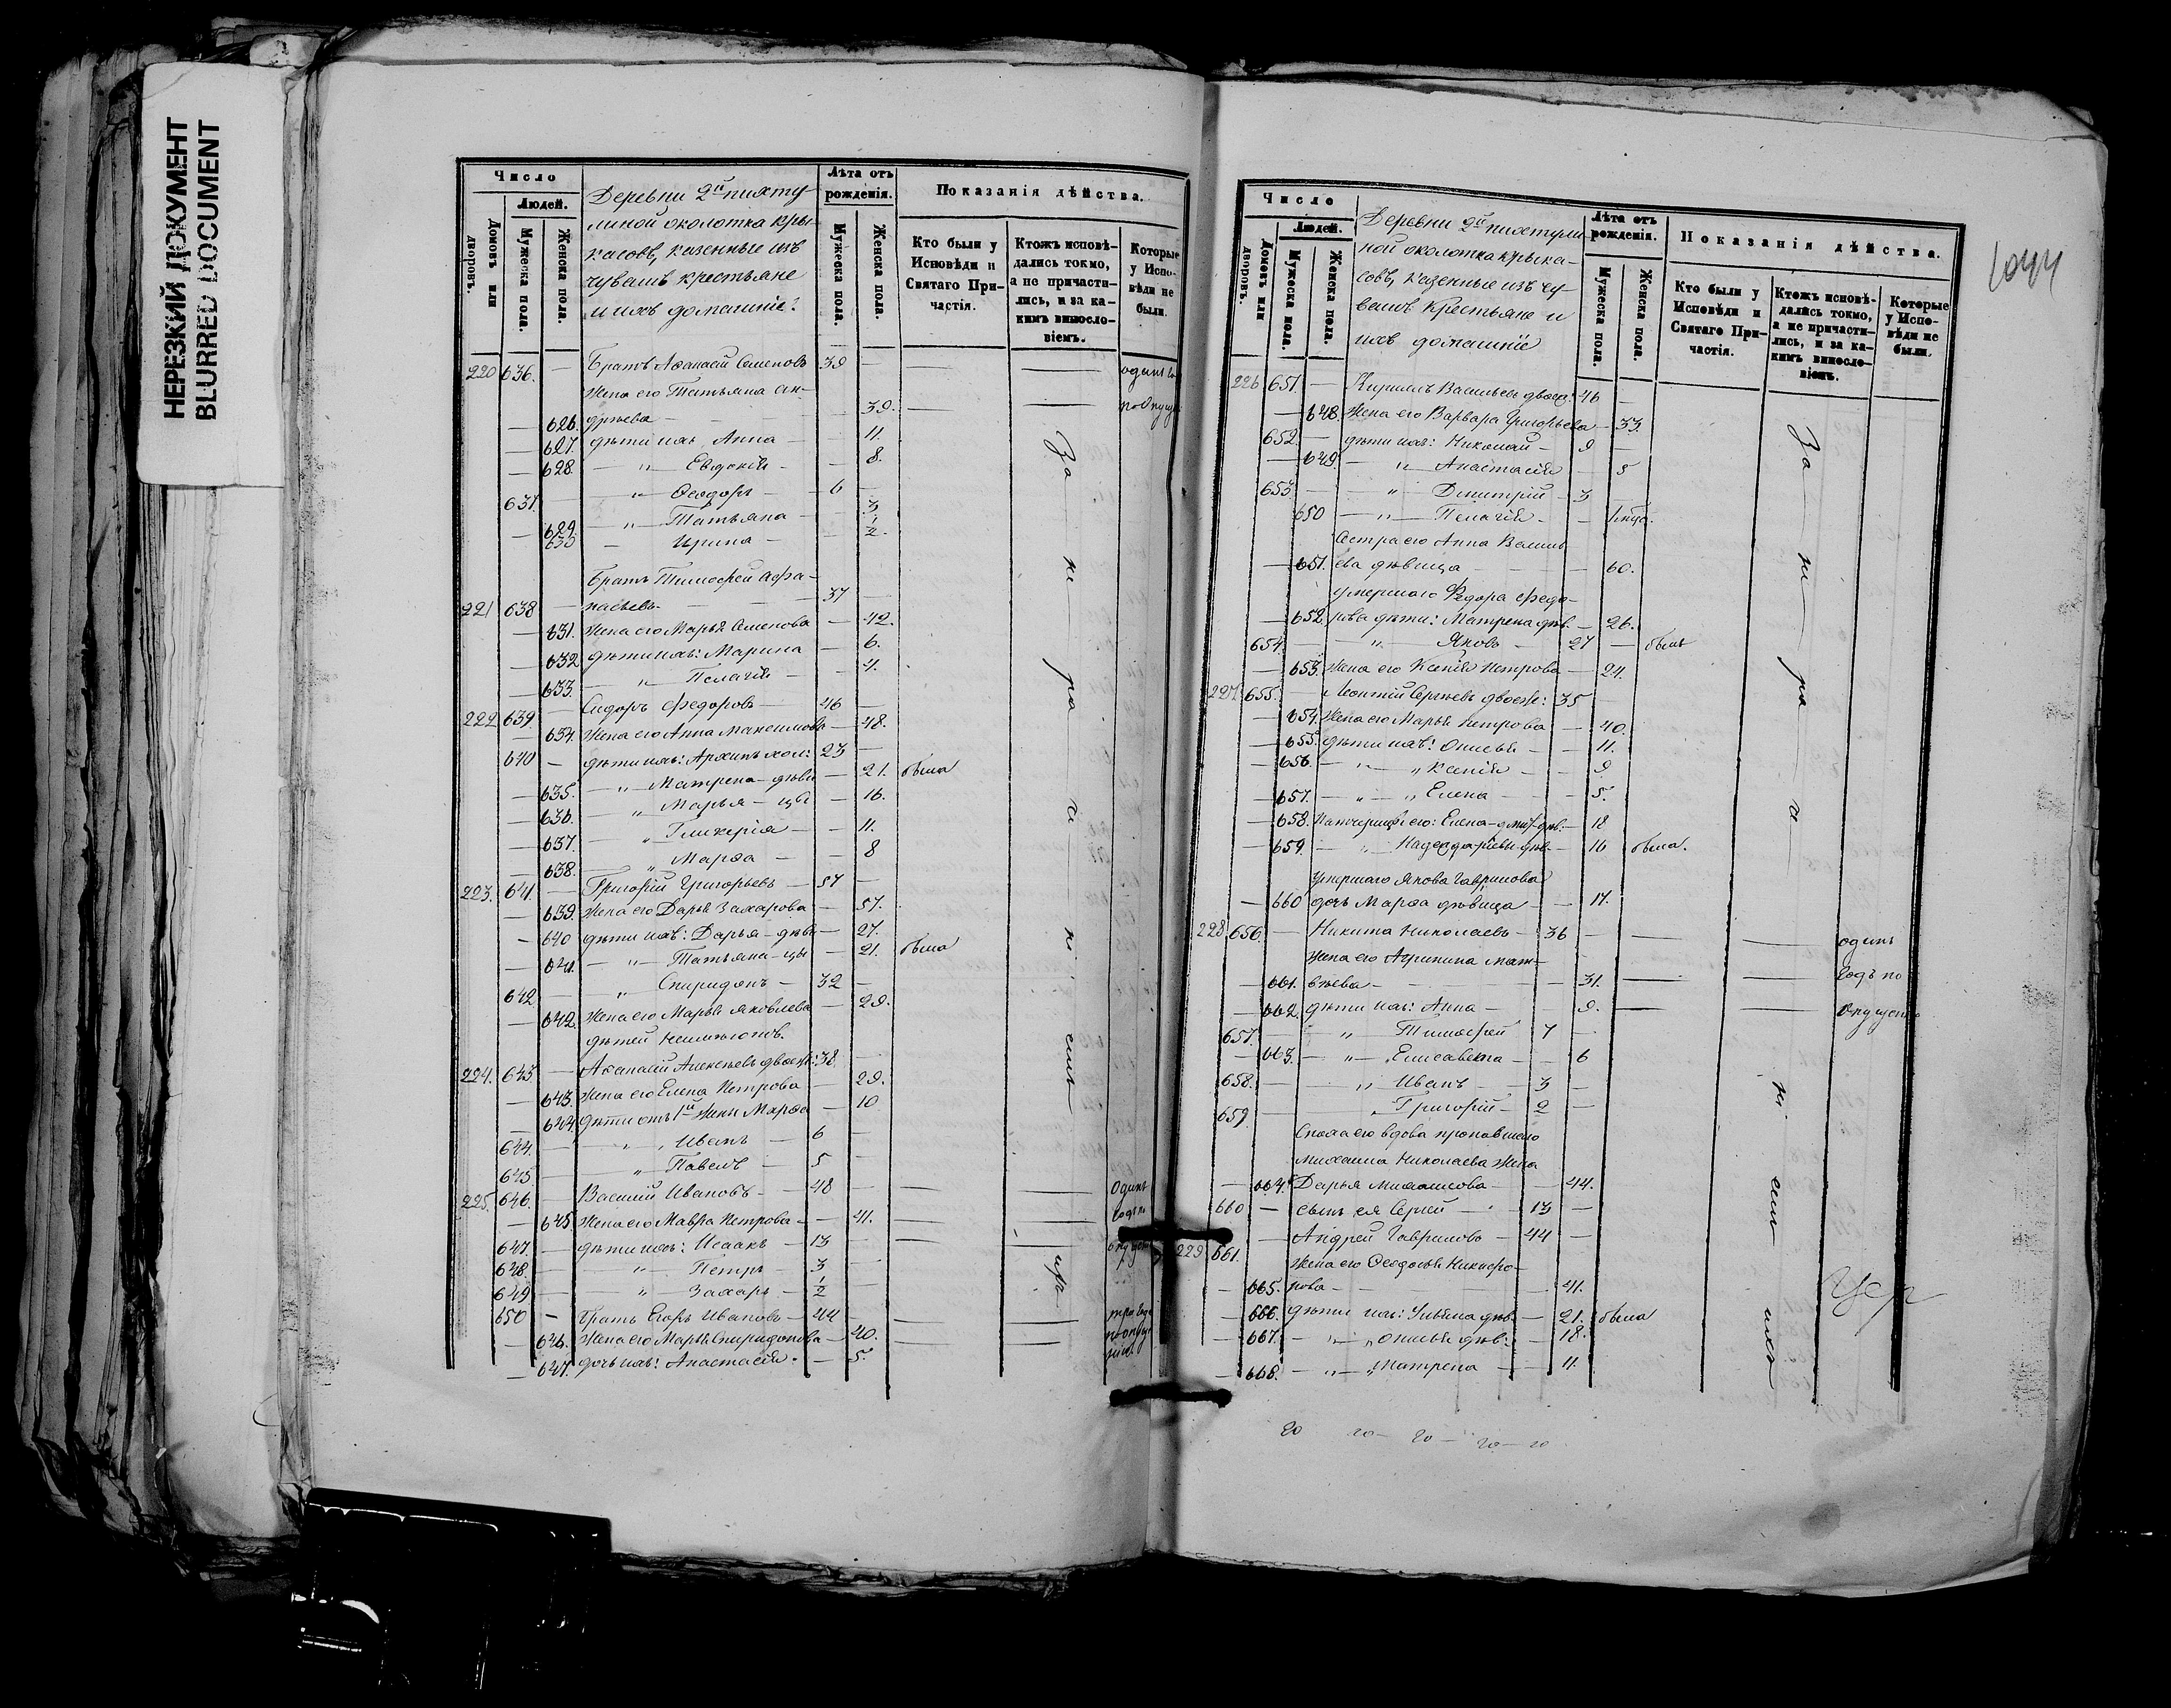 НЕРЕЗКИЙ ДОКУМЕНТ
BLURRED DOCUMENT
Число
Людей.
Домовъ или дворовъ.
Мужеска пола.
Женска пола.
Деревни 2й пихту
линой околотка Кры
касовъ, казенные изъ
чувашъ крестьяне
и ихъ домашніе:
Лѣта отъ рожденія.
Мужеска пола.
Женска пола.
Показанія дѣйства.
Кто были у Исповѣди и Святаго Причастія.
Ктожъ исповѣдались токмо, а не причастились, и за какимъ винословіемъ.
Которые у Исповѣди не были.
220 636. — Братъ Аѳанасій Семеновъ 39 —
Жена его Татьяна Ан-
— 626. дрѣева — 39.
— 627. дѣти ихъ, Анна — 11.
— 628. — " — Евдокія — 8.
637. — " — Ѳеодоръ — 6 —
— 629 — " — Татьяна — 3
630 — Ирина — 1/2.
Братъ Тимоѳей Афа-
221 638 — насьевъ — 37 —
— 631. Жена его Марья Семенова — 42.
— 632 дѣти ихъ: Марина — 6.
— 633. — " — Пелагія — 4.
222 639. — Сидоръ Федоровъ — 46 —
634. Жена его Анна Максимова — 48.
640 — дѣти ихъ: Архипъ хол: 23 —
— 635. — " — Матрена — дѣви — 21. была
— 636. " Марья — цы — 16.
— 637. " Гликерія — 11.
— 638. " Марѳа — 8
223. 641. — Григорій Григорьевъ — 57 —
— 639. Жена его Дарья Захарова — 57.
— 640 дѣти ихъ: Дарья — дѣви — 27.
— 641. — " — Татьяна — цы — 21. была
642 — " Спиридонъ — 32 —
— 642. Жена его Марья Яковлева — 29.
дѣтей неимѣютъ.
224. 643. — Аѳанасій Алексѣевъ двоеж: 38. —
— 643. Жена его Елена Петрова — 29.
— 644. дѣти отъ 1й жены Марѳа — 10
644. — " Иванъ — 6 —
645. — " — Павелъ — 5 —
225. 646. — Василій Ивановъ — 48 — Одинъ
— 645. Жена его Мавра Петрова — 41. —
647. — дѣти ихъ: Исаакъ — 13 —
648. — " — Петръ — 3 —
649 — " — Захаръ — 1/2 —
650 — Братъ Егоръ Ивановъ — 44 —
— 646. Жена его Марья Спиридонова — 40. —
— 647. дочь ихъ: Анастасія. — 5.
За не ра ч і е
Число
Людей.
Домовъ или дворовъ.
Мужеска пола.
Женска пола.
Деревни 2й пихтули
ной околотка Крыка-
совъ, казенные изъ чу-
вашъ крестьяне и
ихъ домашніе
Лѣта отъ рожденія.
Мужеска пола.
Женска пола.
Показанія дѣйства.
Кто были у Исповѣди и Святаго Причастія.
Ктожъ исповѣдались токмо, а не причастились, и за какимъ винословіемъ.
Которые у Исповѣди не были.
1044
226 651 — Кириллъ Васильевъ двоеж: 46 —
— 648. Жена его Варвара Григорьева — 33.
652. — дѣти ихъ: Николай — 9 —
— 649. — " — Анастасія — 5
653. — " — Димитрій — 3 —
650 — " — Пелагія —
Сестра его Анна Василь
— 651. ева дѣвица — 60.
умершаго Федора Федо-
— 652. рова дѣти: Матрена дѣв. — 26.
654. — " Яковъ — 27 — былъ
— 653. Жена его Ксенія Петрова — 24.
227. 655. — Леонтій Сергѣевъ двоеж: 35 —
— 654. Жена его Марья Петрова — 40.
— 655. дѣти ихъ: Онисья — 11.
— 656. — " — " Ксенія — 9
— 657. — " — " Елена — 5.
— 658. Патчерицы его: Елена — дѣв: — 18
— 659. — " — дѣв. — 16 была.
умершаго Якова Гаврилова
— 660 дочь Марѳа дѣвица — 17.
228 656. — Никита Николаевъ — 36 — одинъ
Жена его Агрипина Мат- годъ по
— 661. вѣева — 31. —
— 662. дѣти ихъ: Анна — 9. —
657. — " Тимоѳей 7 —
— 663. — " — Елисавета — 6
658. — " Иванъ — 3 —
659. — " Григорій — 2 —
Сноха его вдова пропавшаго
Михаила Николаева жена
— 664. Дарья Михаилова — 44.
660 — сынъ ея Сергей — 13 —
229 661. — Андрей Гавриловъ — 44 —
Жена его Ѳеодосья Никифо-
— 665. рова — 41.
— 666. дѣти ихъ: Ульяна дѣв. — 21. была
— 667. — " — " Онисья дѣв: — 18.
— 668. — " — " Матрена — 11.
За не ра ч
20 20 — 20 — 20 — 20